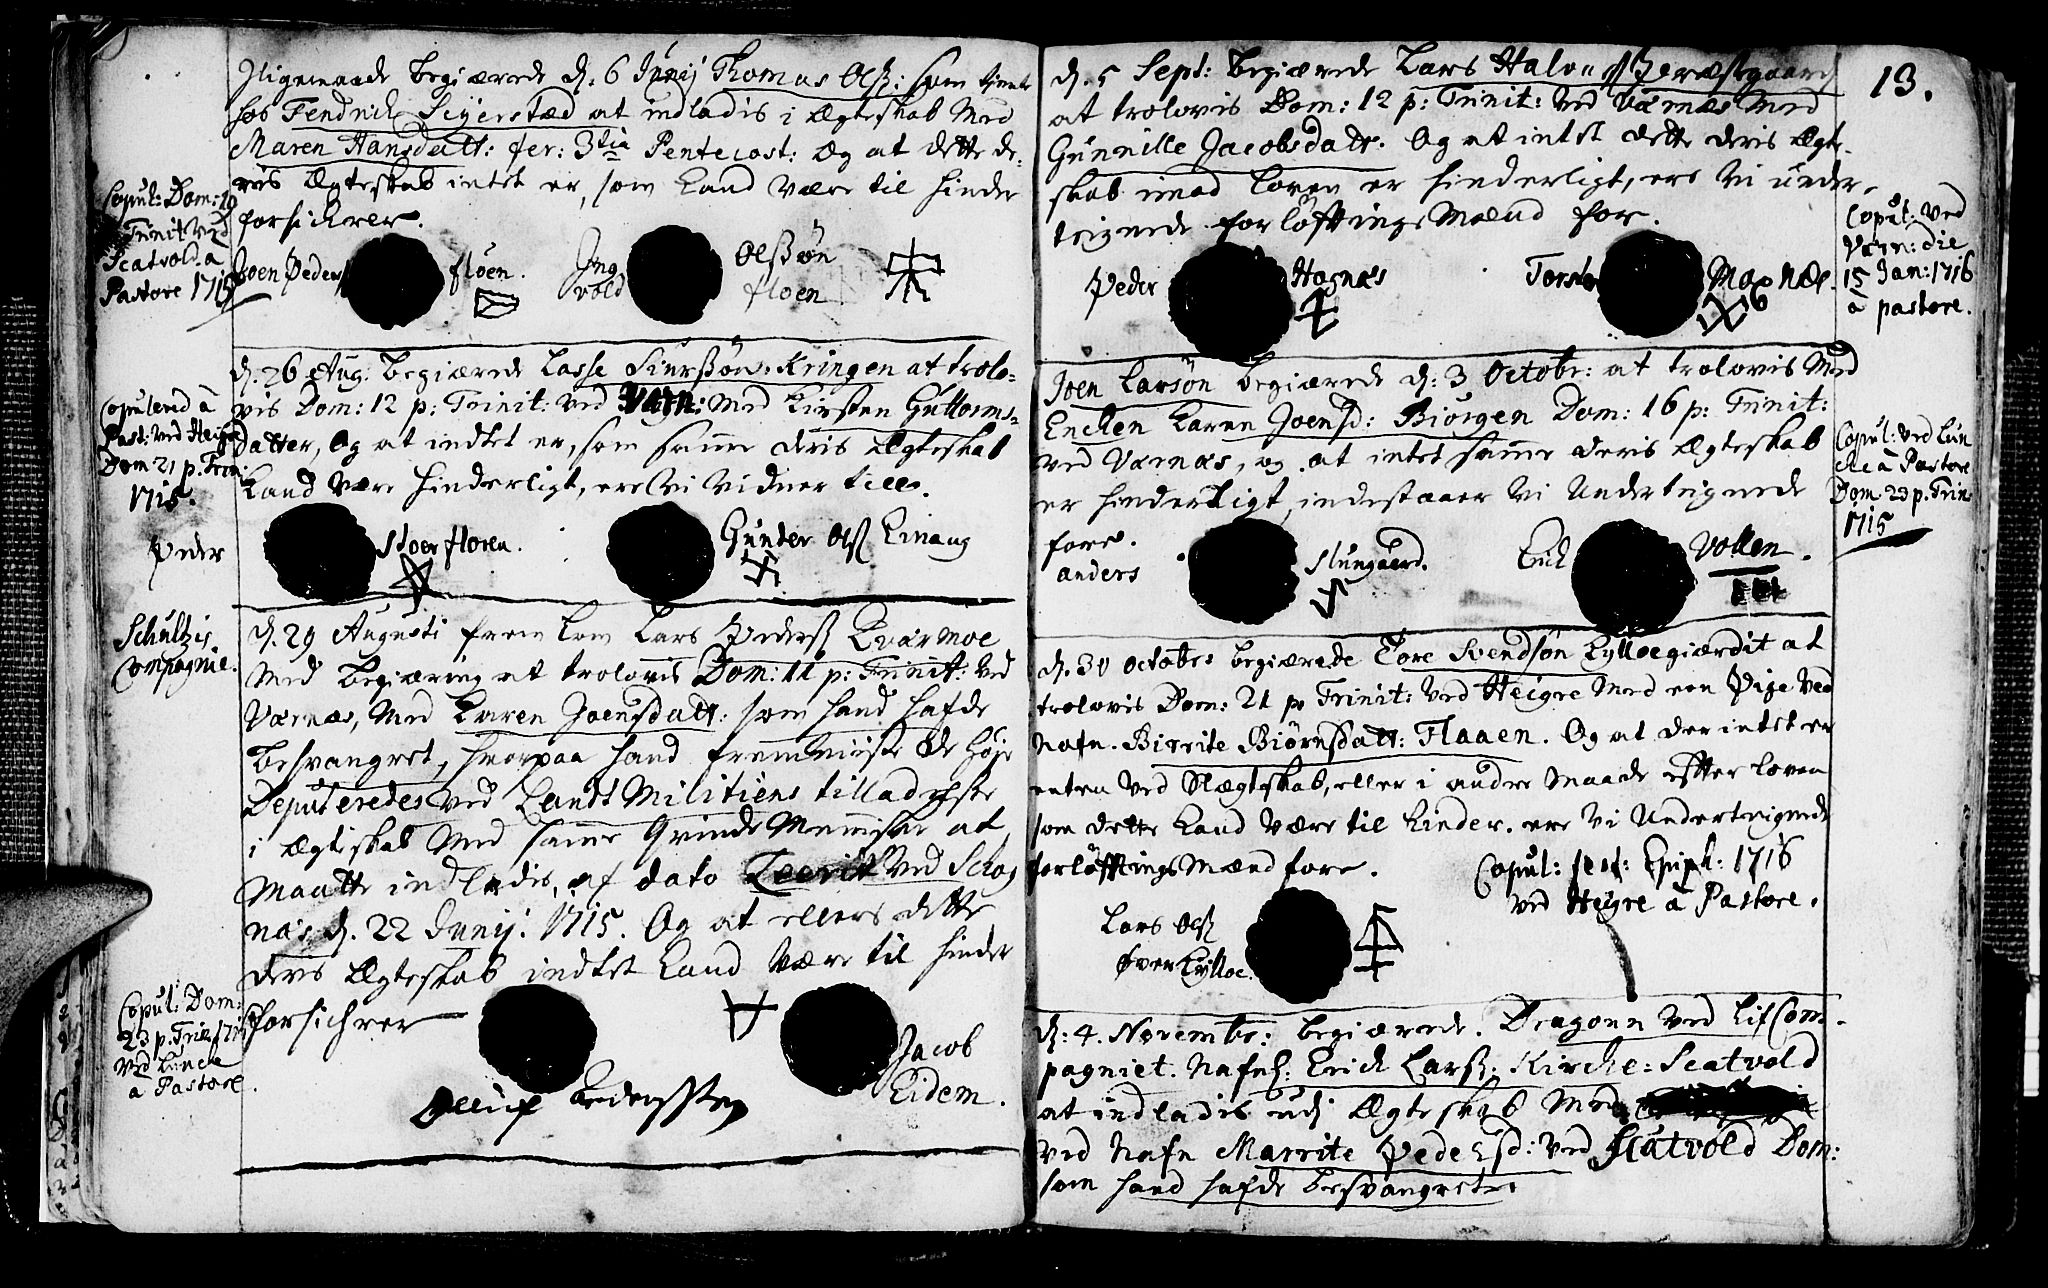 Ligemaade begiærede d. 6 Junij Thomas Olß: som tient
hos Fendrich Seyerstæd at indladis i Ægteskab Med
Maren Hansdatt: fer: 3tia Pentecost: Og at dette de-
ris Ægteskab intet er, som Kand være til hinder
forsichrer.
Copul: Dom: 19
Trinit ved
Scatvold a
Pastore 1715
Joen Peders floen.
Ing
vold
Olßøn
floen
d. 26 Aug. begiærede Lasse Siurßøn Kringen at trolo-
vis Dom: 12 p: Trinit: ved Værn: Med Kirsten Guttorms-
datter, Og at indtet er, som samme deris Ægteskab
Kand være hinderligt, ere Vi Vidner till.
Copulerid à
Past: ved Heigre
Dom 21 p. Trin:
1715.
Peder Stoer floren.
Gunder Olß Einang
d. 29 Augusti frem kom Lars Pederß Kvarmoe
Med begiæring at trolovis Dom: 11 p: Trinit: ved
Værnæs, Med Karen Joensdatt: som hand hafde
besvangret, hvorpaa hand fremviiste de høje
Deputeredes ved Landt Militiens tilladelse
i Ægteskab Med samme qvinde Menniske at
Maatte indledis, af dato Leerit ved Schog
næs d. 22 Junij. 1715. Og at ellers dette
ders Ægteskab indtet Kand være til hinder
forsichrer
Schultzis
Compagnie.
Copul: Dom:
23 p. Trin 1715
ved Lunche
a Pastore.
Pedersen
Jacob
Eidem.
13.
d. 5 Sept: begiærede Lars Halvorß Præstgaard
at trolovis Dom: 12 p: Trinit: ved Værnæs Med
Gunnille Jacobsdatt. Og at intet dette deris Ægte-
skab imod loven er hinderligt, ere Vi under-
teignede forløftnings Mænd for.
Copul: ved
Værn: die
15 Jan: 1716
à pastore.
Peder Hognæs
Torste Moxnæs.
Joen Larsøn begiærede d: 3 Octobr: at trolovis Med
Enchen Karen Joensd: Biørgen Dom: 16 p: Trinit:
ved Værnæs, og at intet samme deris Ægteskab
er hinderligt indestaaer Vi Underteignede
fore.
Copul: ved Lun
che à Pastore
Dom 23 p. Trin
1715
anders Slungaerd.
Erich Vollen.
d. 30 octobr: begiærede Tore Svendsøn Kylloegiærdit at
trolovis Dom: 21 p Trinit: ved Heigre Med een Pige ved
Nafn. Birrite Biørnsdatt: Flaaen. Og at der intet er
enten ved Slægtskab, eller i andre Maade efter loven
som dette Kand være til Hinder. ere Vi Underteignede
forløftnings Mænd fore.
Copul: fest: Epiph: 1716
ved Heigre à Pastore.
Lars Olß
Øver Kylloe.
d: 4. Novembr: begiærede. Dragoun ved LifCom-
pagniet. Nafnl: Erich Larß: Kirche: Scatvold
at indladis udj Ægteskab Med
ved Nafn Marrite Pedersd: ved Scatvold Dom:
som hand hafde besvangret.